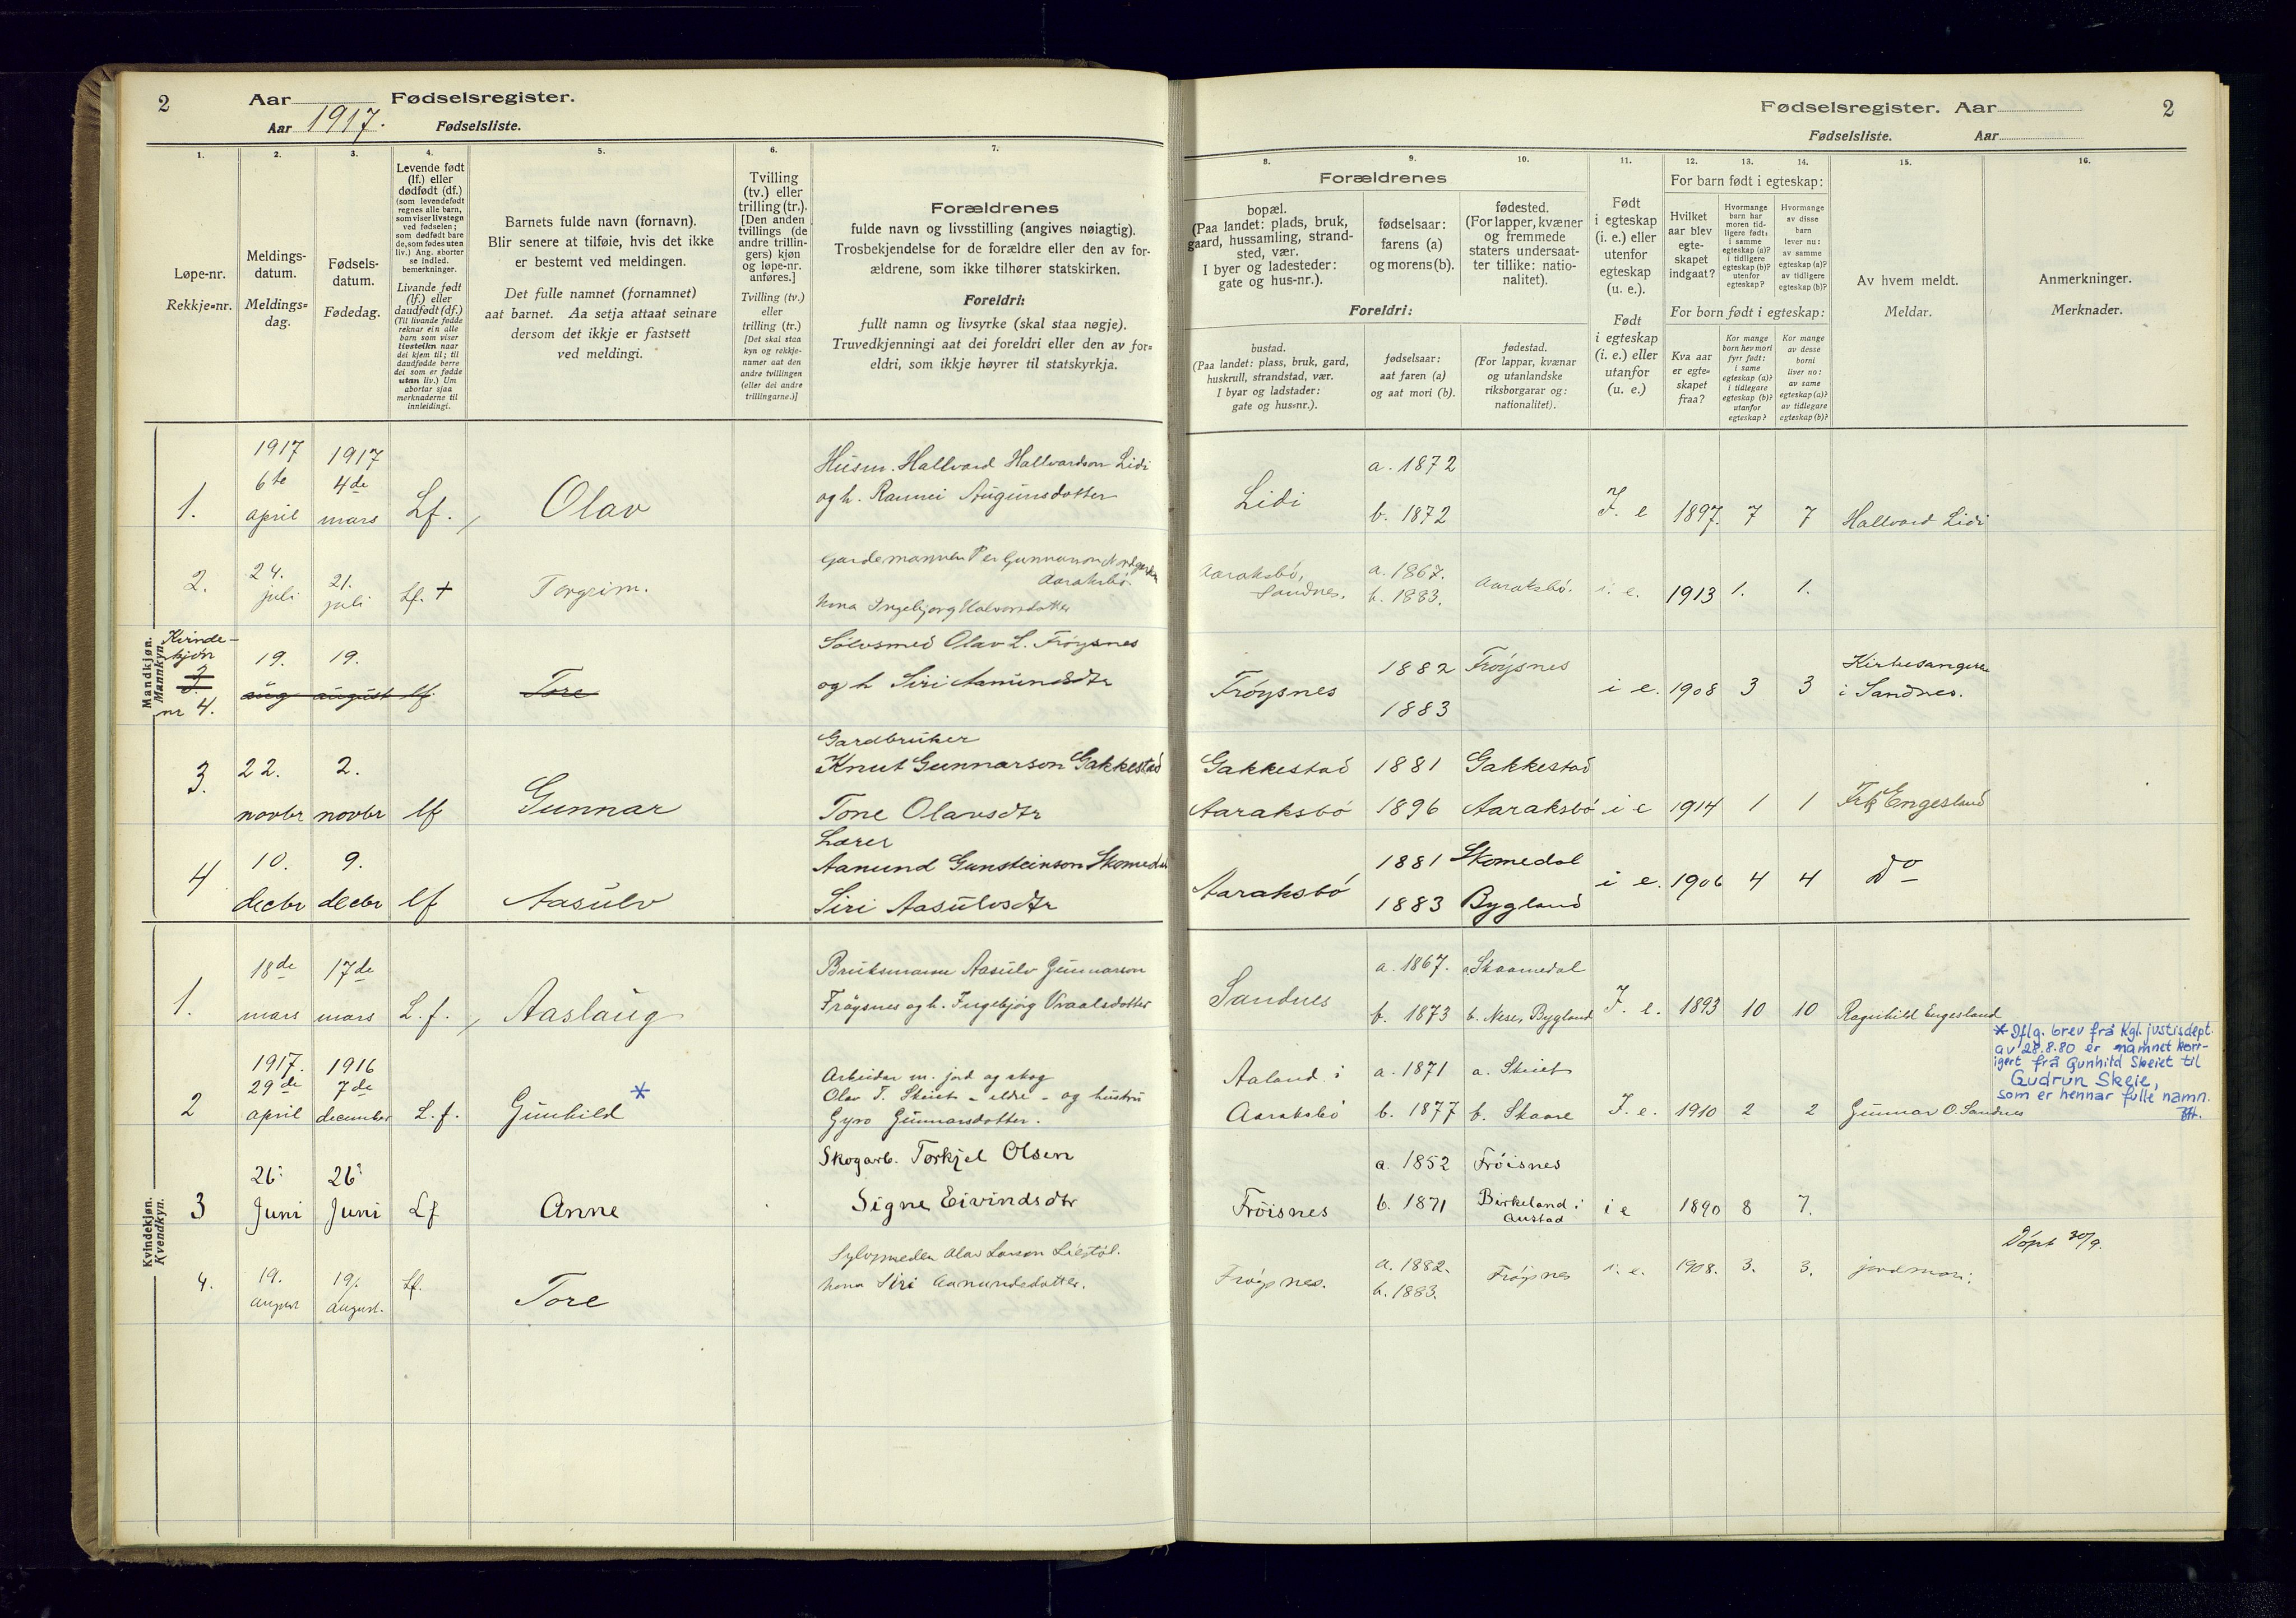 2
Aar Fødselsregister.
Aar 1917. Fødselsliste.
1.
2.
3.
4.
5.
6.
7.
Løpe-nr.
Rekkje=nr.
Meldings-
datum.
Meldings=
dag.
Fødsels-
datum.
Fødedag.
Levende født
(lf.) eller
dødfødt (df.)
(som levendefødt
regnes alle barn,
som viser livstegn
ved fødselen;
som dødfødt bare
de, som fødes uten
liv.) Ang. aborter
se indled.
bemerkninger.
Livande født
(lf.) eller
daudfødt (df.)
(Til livande fødde
reknar ein alle
barn som viser
livsteikn naar
dei kjem til; til
daudfødde berre
dei som er fødde
utan liv.) Um
abortar sjaa
merknaderne til
innleidingi.
Barnets fulde navn (fornavn).
Blir senere at tilføie, hvis det ikke
er bestemt ved meldingen.
Det fulle namnet (fornamnet)
aat barnet. Aa setja attaat seinare
dersom det ikkje er fastsett
ved meldingi.
Tvilling
(tv.) eller
trilling (tr.).
[Den anden
tvillings (de
andre trillin-
gers) kjøn
og løpe-nr.
anføres.]
Tvilling (tv.)
eller
trilling (tr.)
[Det skal staa
kyn og rekkje-
numer aat den
andre tvillingen
(eller dei andre
trillingarne.)]
Forældrenes
fulde navn og livsstilling (angives nøiagtig).
Trosbekjendelse for de forældre eller den av for-
ældrene, som ikke tilhører statskirken.
Foreldri:
fullt namn og livsyrke (skal staa nøgje).
Truvedkjenningi aat dei foreldri eller den av for=
eldri, som ikkje høyrer til statskyrkja.
Fødselsregister. Aar
2
Fødselsliste. Aar
8.
9.
10.
11.
12.
13.
14.
15.
16.
Forældrenes
bopæl.
(Paa landet: plads, bruk,
gaard, hussamling, strand-
sted, vær.
I byer og ladesteder:
gate og hus-nr.).
fødselsaar:
farens (a)
og morens (b).
fødested.
(For lapper, kvæner
og fremmede
staters undersaat-
ter tillike: natio-
nalitet).
Foreldri:
bustad.
(Paa landet: plass, bruk, gard,
huskrull, strandstad, vær.
I byar og ladstader:
gate og hus=nr.).
fødselsaar:
aat faren (a)
og aat mori (b).
fødestad.
(For lappar, kvænar
og utanlandske
riksborgarar og:
nationalitet).
Født
i egteskap
(i. e.) eller
utenfor
egteskap
(u. e.).
Født
i egteskap
(i. e.) eller
utanfor
egteskap
(u. e.)
For barn født i egteskap:
Hvilket
aar blev
egte-
skapet
indgaat?
Hvormange
barn har
moren tid-
ligere født:
i samme
egteskap (a)?
i tidligere
egteskap (b)?
utenfor
egteskap?
Hvormange
av disse
barn
lever nu:
av samme
egteskap (a)?
av tidligere
egteskap (b)?
For born født i egteskap:
Kva aar
er egte=
skapet
fraa?
Kor mange
born hev mori
fyrr født:
i same
egteskap (a)?
i tidlegare
egteskap (b)?
utanfor
egteskap?
Kor mange
av desse
borni
liver no:
av same
egteskap (a)?
av tidlegare
egteskap (b)?
Av hvem meldt.
Meldar.
Anmerkninger.
Merknader.
Mandkjøn.
Mannkyn.
1. 1917 6te april 1917 4de mars Lf. Olav
Husm. Hallvard Hallvardson Lidi
og h. Rannei Augunsdotter
Lidi a. 1872 b. 1872 I. e 1897. 7 7 Hallvard Lidi
2. 24. juli 21. juli Lf. + Torgeim.
Gardemannen Per Gunnarson
Aaraksbø.
kona Ingebjorg Halvorsdotter
Aaraksbö, Sandnes. a. 1867. b. 1883. Aaraksbö. i. e. 1913 1. 1.
Kvinde-
kjön
3.
nr 4.
19. aug 19. august lf. Tore
Sølvsmed Olav L. Fröysnes
og h Siri Aamundsdtr
Fröysnes 1882 1883 Fröysnes i e. 1908 3 3 Kirkesangeren
i Sandnes.
3. 22. novbr 2. novbr lf Gunnar
Gardbruker
Knut Gunnarson Gakkestad
Tone Olavsdtr
Gakkestad 1881 Gakkestad
Aaraksbö 1896 Aaraksbö i e 1914 1 1 Frk Engesland
4 10. decbr 9. decbr lf Aasulv
Lærer
Aanund Gunsteinson Skomedal
Siri Aasulvsdtr
Aaraksbö 1881 Skomedal
1883 Bygland i e. 1906 4 4 do
Kvindekjøn.
Kvendkyn.
1. 18de mars 17de mars L. f. Aaslaug
Bruksmann Aasulv Gunnarson
Fröysnes og h. Ingebjörg Vraalsdotter
Sandnes a. 1867. a. Skaamedal
b. 1873 b. Nese, Bygland I. e. 1893 10 10 Ragnhild Engesland
2 1917. 29de april 1916 7de december L. f. Gunhild *
Arbeidar m. jord og skog
Olav T. Skeiet - eldre - og hustru
Gyro Gunnarsdotter.
Aaland i
Aaraksbö a. 1871 a. Skeiet
b. 1877 b. Skaare I. e. 1910 2 2 Gunnar O. Sandnes
* Iflg. brev frå Kgl. justisdept.
av 28.8.80 er namnet korr-
igert frå Gunhild Skeiet til
Gudrun Skeie,
som er hennar fulle namn.
3 26. Juni 26. Juni Lf Anne
Skogarb. Torkjel Olsen
Signe Eivindsdtr
Fröisnes a. 1852 Fröisnes
b. 1871 Birkeland i
Austad i e 1890 8 7.
4. 19. august 19. august. Lf. Tore
Sylvsmeden Olav Larson Liestöl.
kona Siri Aanundsdotter.
Fröysnes. a. 1882. b. 1883. Fröysnes i. e. 1908. 3. 3. jordmori.
Döpt 30/9.